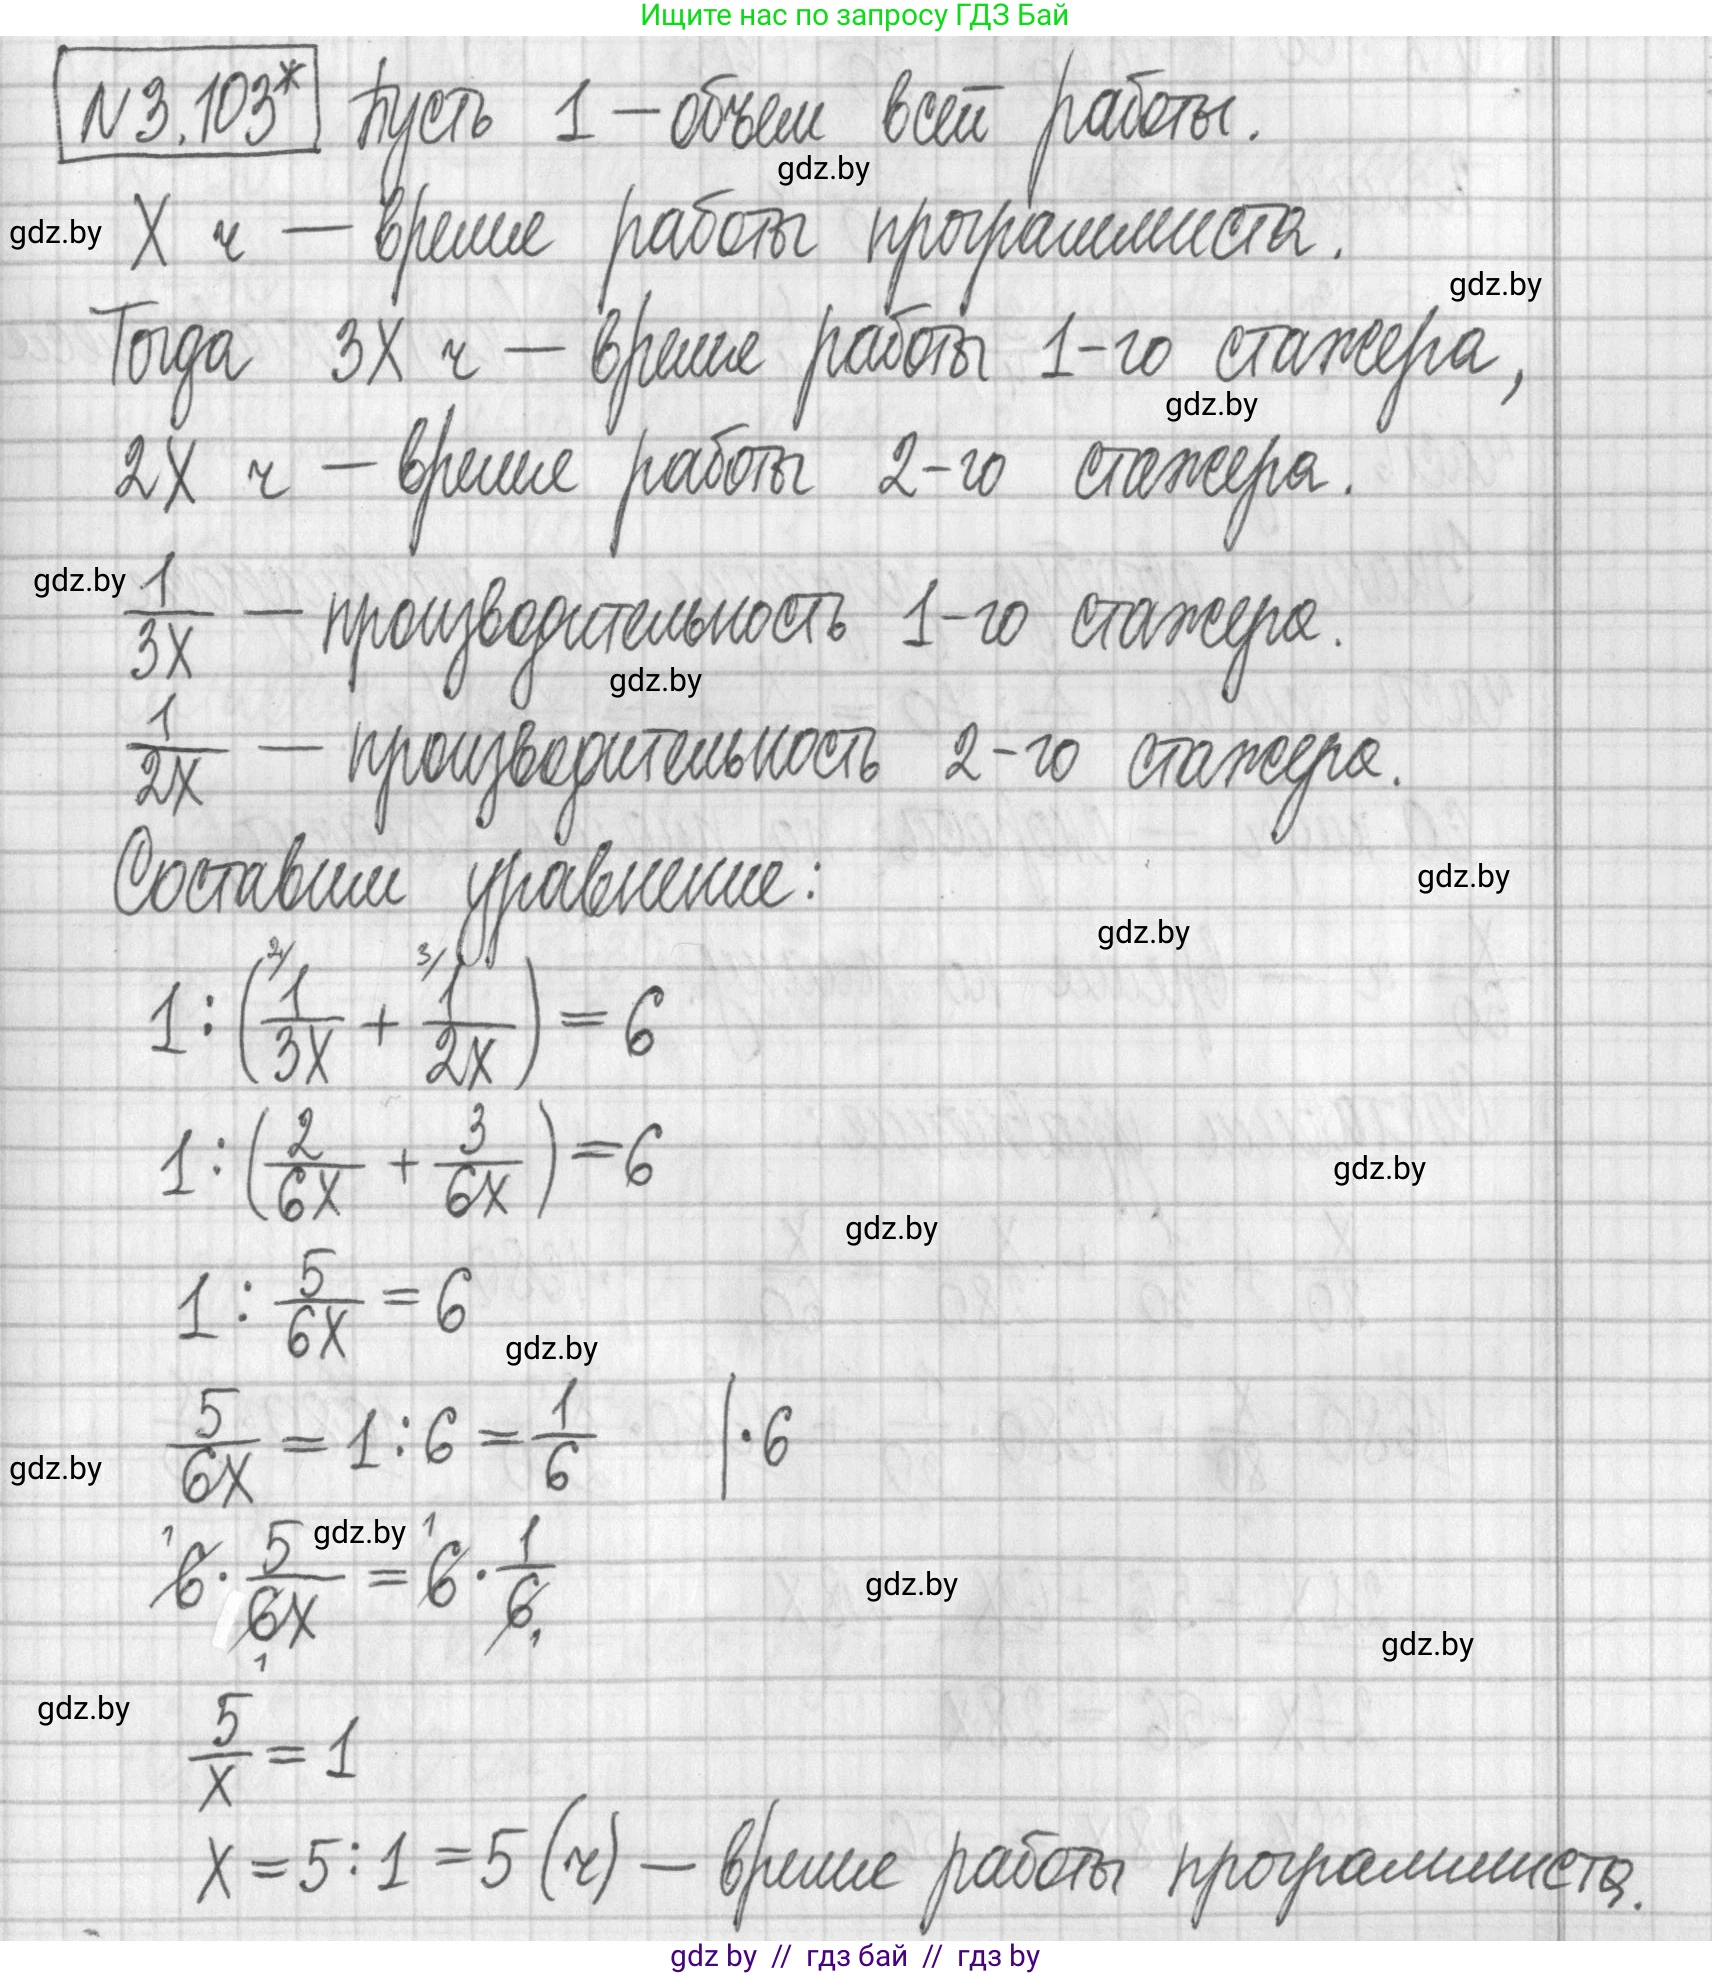 Ищите нас по запросу ГДЗ Бай
N3.103* Пусть 1 – объем всей работы.
gdz.by
gdz.by X ч – время работы программиста.
gdz.by
Тогда 3X ч – время работы 1-го стажера,
gdz.by
2X ч – время работы 2-го стажера.
gdz.by 1/3X – производительность 1-го стажера.
gdz.by
1/2X – производительность 2-го стажера.
Составим уравнение:
gdz.by
gdz.by
1 : (2/ 1/3X + 3/ 1/2X) = 6
1 : (2/6X + 3/6X) = 6
gdz.by
gdz.by
1 : 5/6X = 6
gdz.by
5/6X = 1 : 6 = 1/6 | · 6
gdz.by
gdz.by
1 6 · 5/6X 1 = 1 6 · 1/6 1
gdz.by
gdz.by
gdz.by 5/X = 1
X = 5 : 1 = 5 (ч) – время работы программиста.
gdz by // гдз бай // гдз by